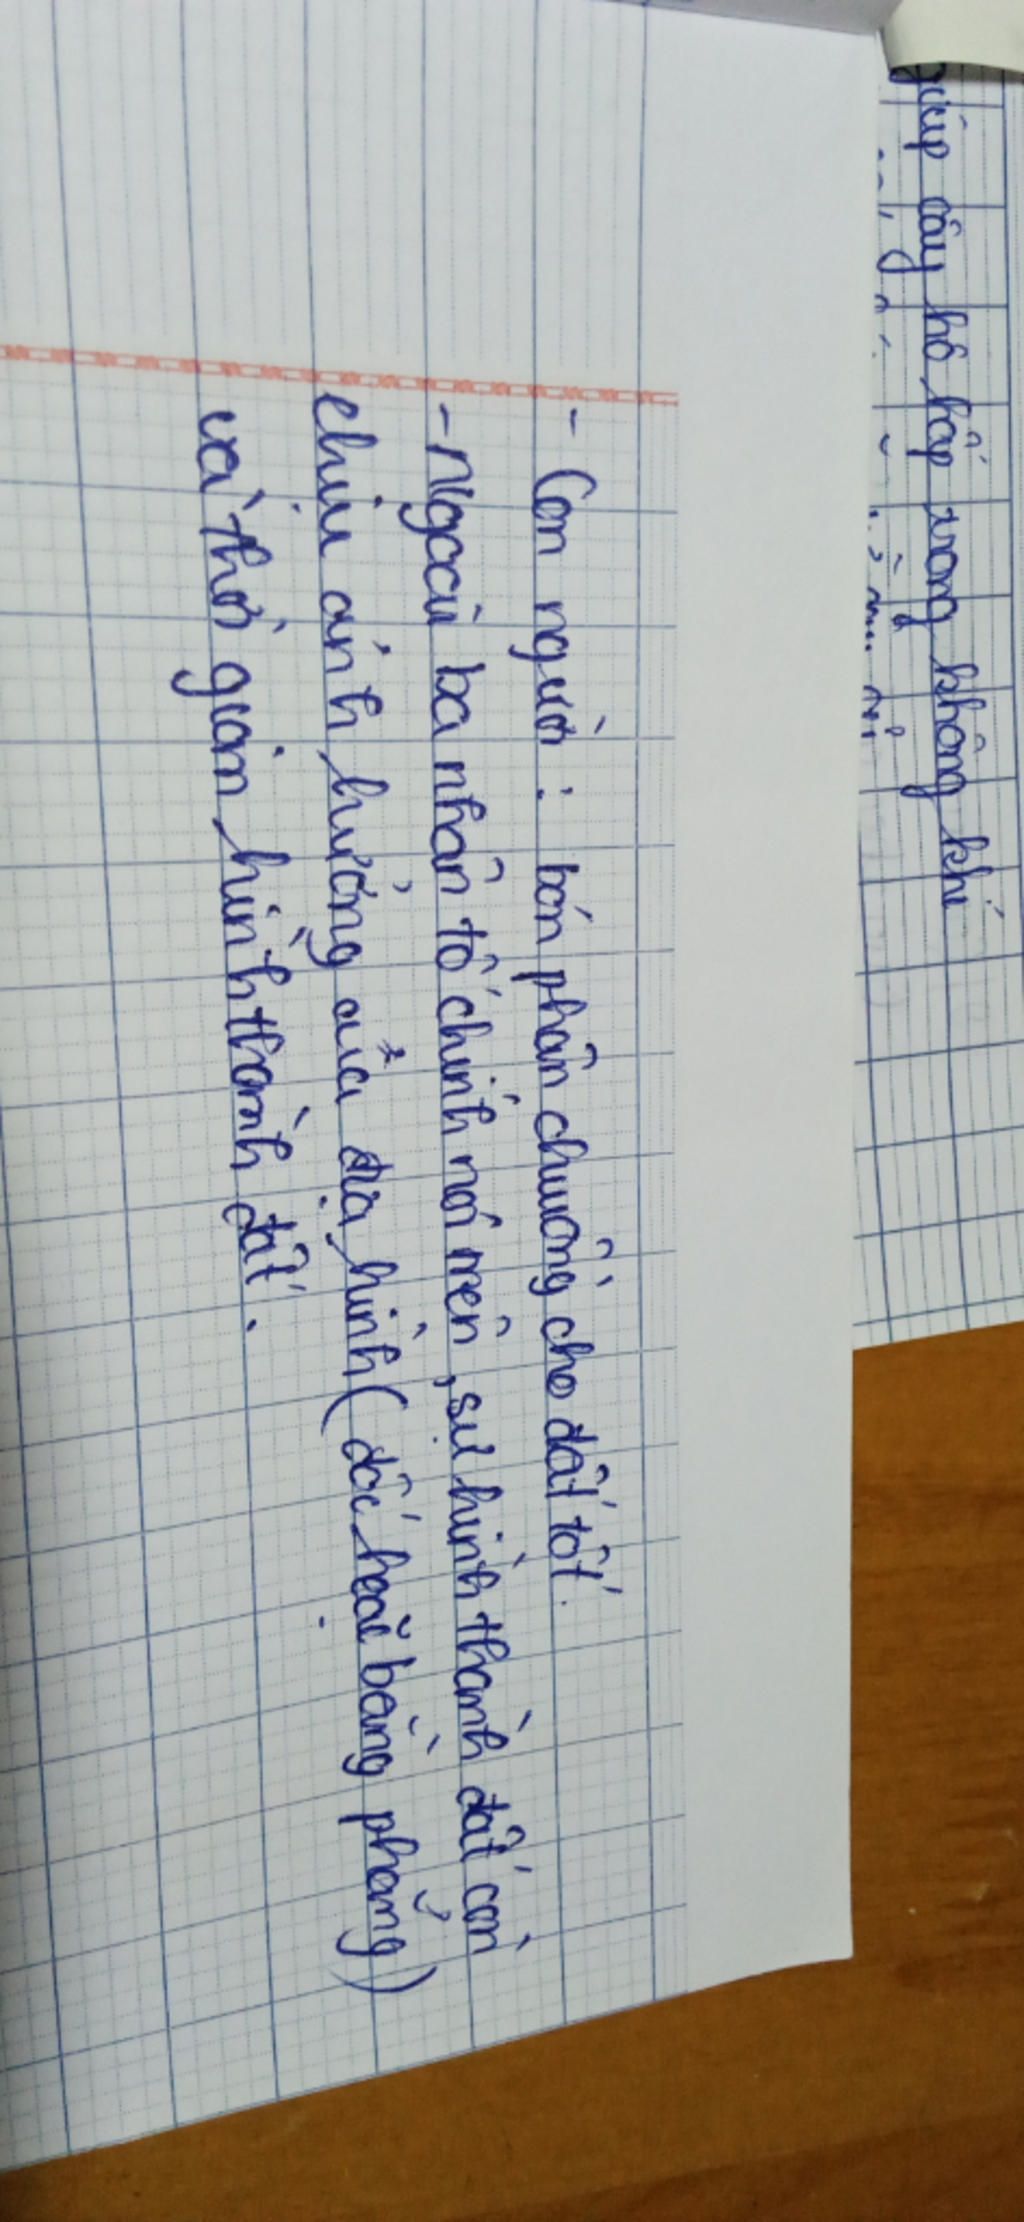 giúp cây hô hấp trong không khí
- Con người : bón phân chuồng cho đất tốt.
- Ngoài ba nhân tố chính nói trên, sự hình thành đất còn
chịu ảnh hưởng của địa hình ( dốc hoặc bằng phẳng )
và thời gian hình thành đất.